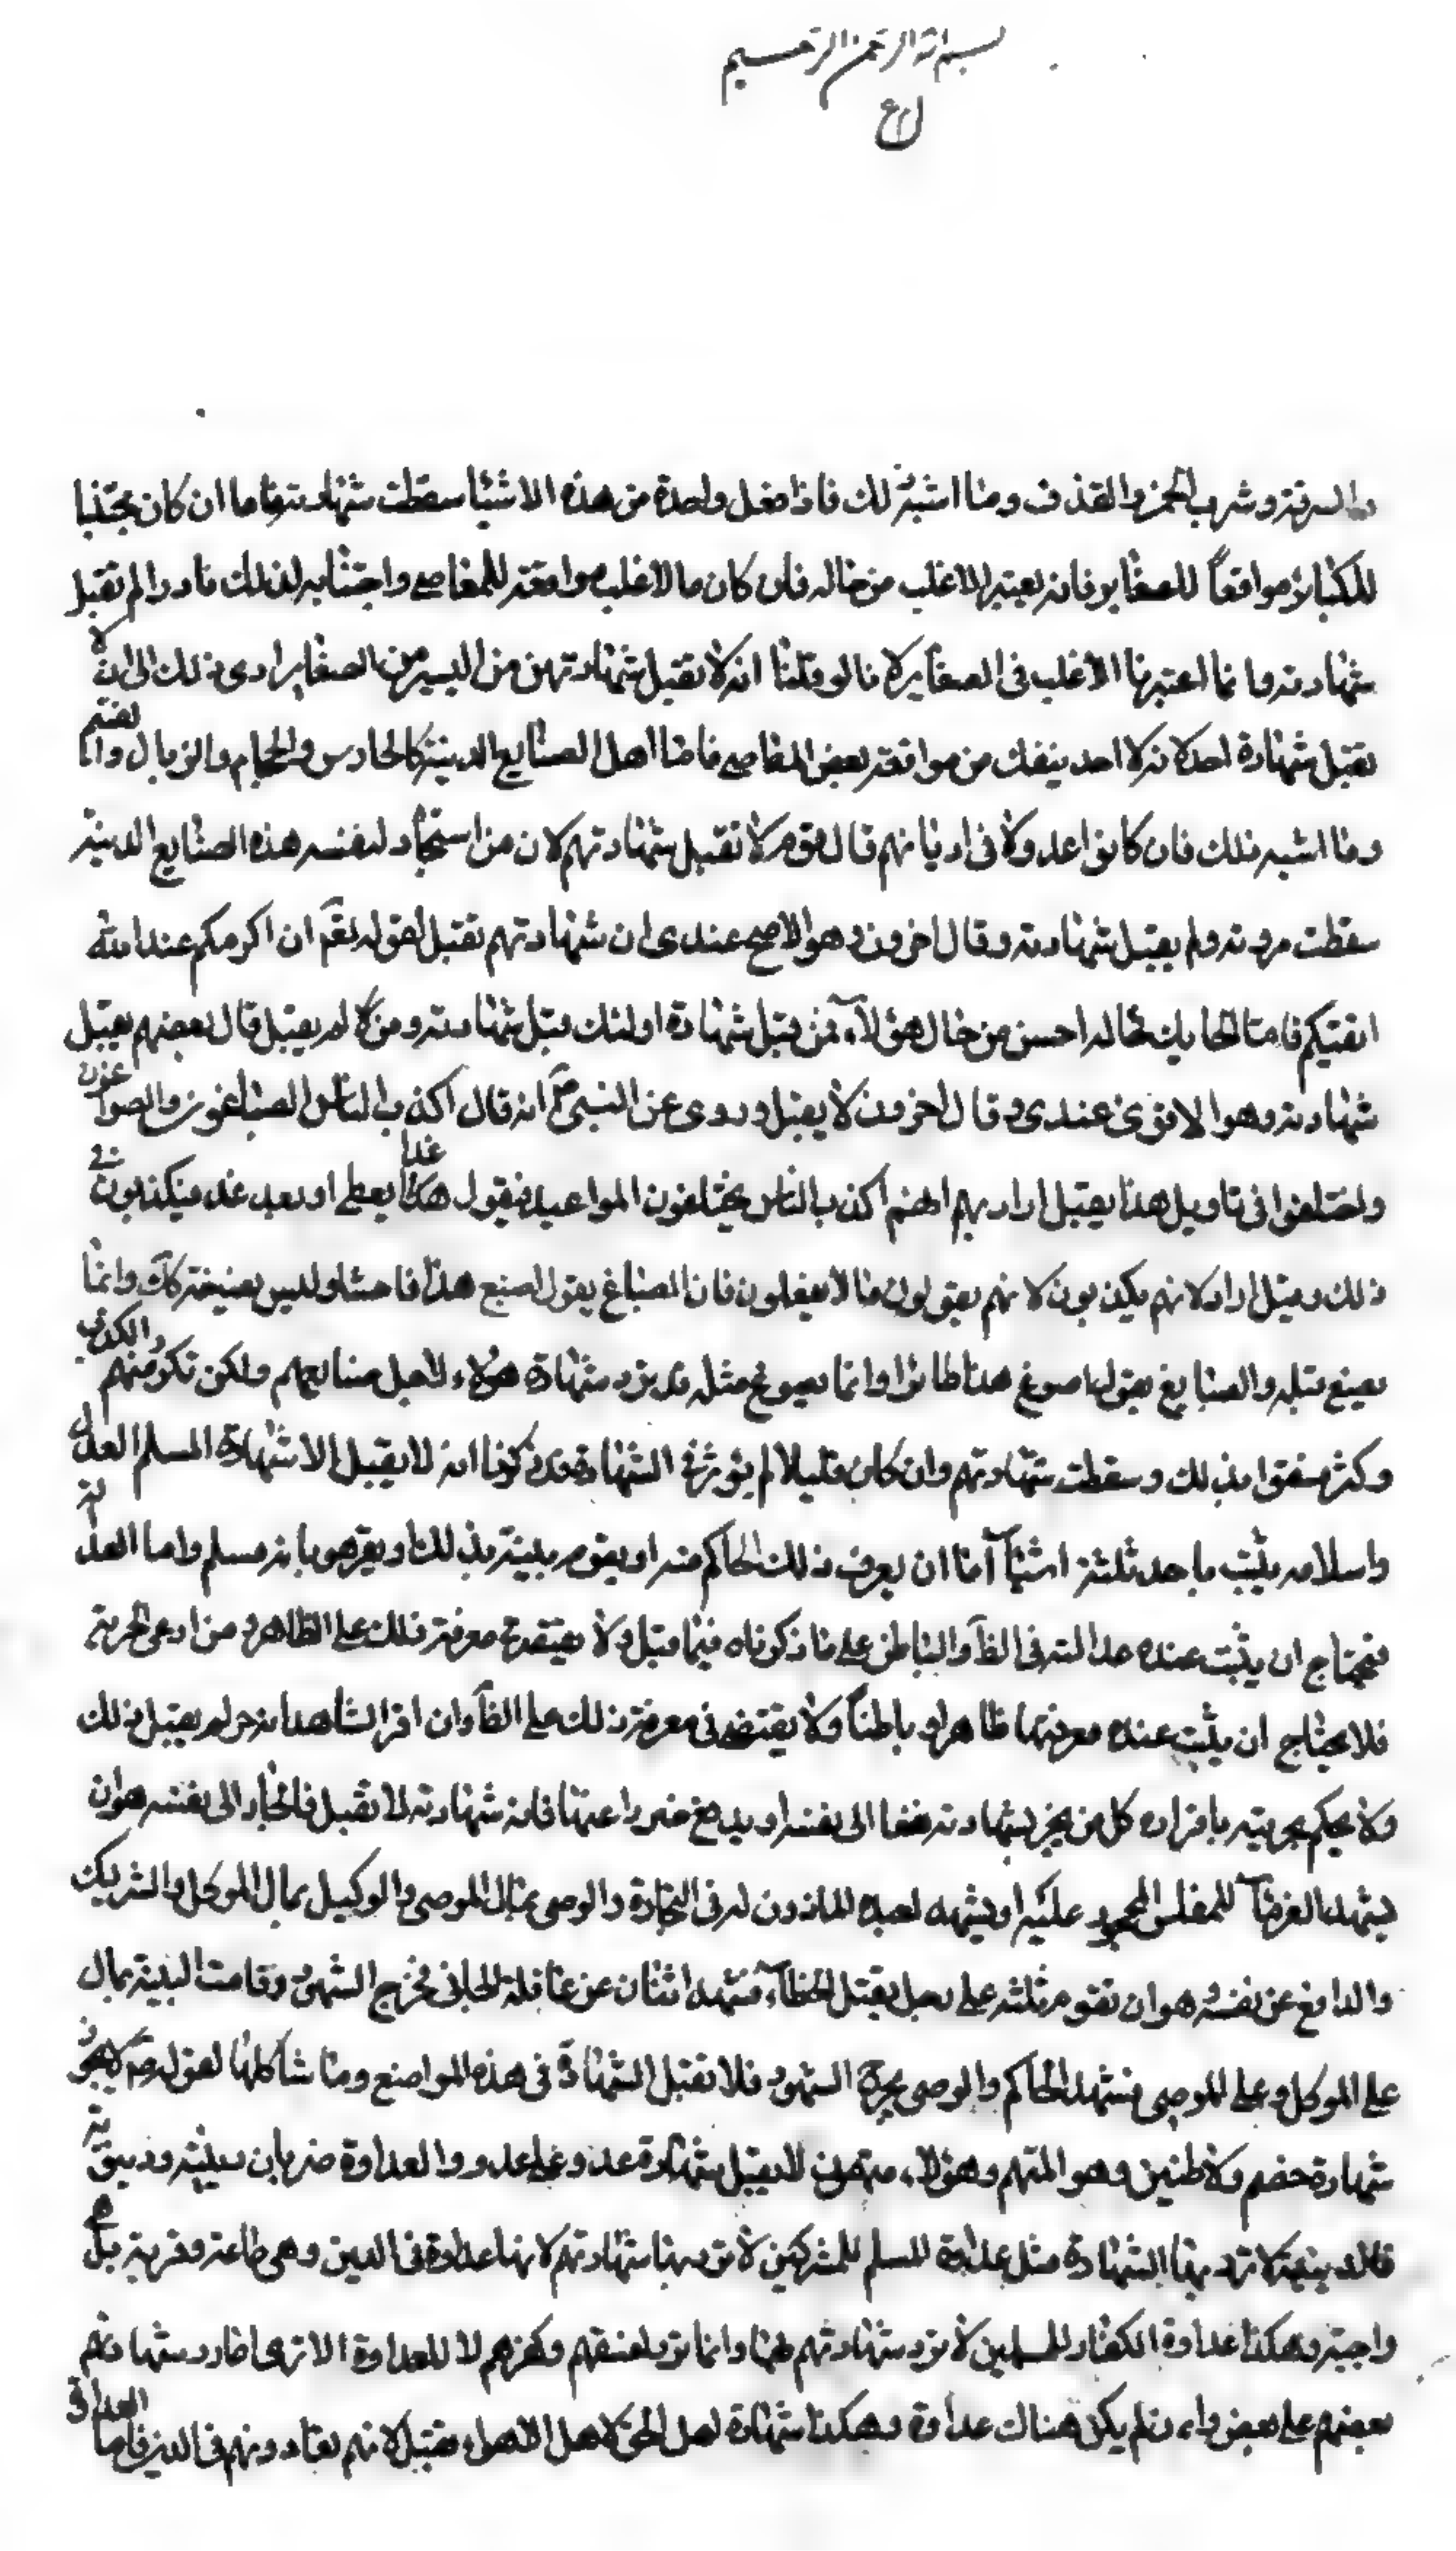 بسم الله الرحمن الرحيم
والسرقة وشرب الخمر والقذف وما اشبه ذلك فاذا فعل واحدة من هذه الاشيا سقطت شهادته فاما ان كان مجتنبا
للكبائر مواقعاً للصغاير فانه يعتبر الاغلب من حاله فان كان الاغلب مواقعته للمعاصي واجتنابه لذلك نادرا لم تقبل
شهادته وانما اعتبرنا الاغلب في الصغاير لانا لو قلنا انه لا تقبل شهادته من من اليسير من الصغاير ادى ذلك الى ان لا
تقبل شهادة احد لانه لا احد ينفك من مواقعة بعض المعاصي فاما اهل الصنايع الدنية كالحارس والحجام والزبال والقيم
وما اشبه ذلك فان كانوا عدولا في اديانهم قال قوم لا تقبل شهادتهم لان من استجاد لنفسه هذه الصنايع الدنية
سقطت مروته ولم يقبل شهادته وقال اخرون وهو الاصح عندي ان شهادتهم تقبل لقوله تعم ان اكرمكم عند الله
اتقيكم فاما الحايك فحاله احسن من حال هؤلآء فمن قبل شهادة اولئك قبل شهادته ومن لا لم يقبل قال بعضهم يقبل
شهادته وهو الاقوى عندي وقال اخرون لا يقبل وروى عن النبي ص انه قال اكذب الناس الصباغون والصواغون
واختلفوا في تاويل هذا يقبل اراد بهم انهم اكذب الناس يختلفون المواعيد فيقول هكذا غدا يعطى او بعد غد فيكذبون في
ذلك وقيل اراد لانهم يكذبون لانهم يقولون ما لا يفعلون فان الصباغ يقول اصبغ هذا فاحشا وليس بصبغته كك وانما
يصبغ قبله والصايغ يقول اصوغ هذا طائرا وانما يصوغ مثله قد يزد شهادة هؤلاء لاجل صنايعهم ولكن تكرر منهم الكذب
وكثر فسقوا بذلك وسقطت شهادتهم وان كان قليلا لم يؤثر في الشهادة قد ذكرنا انه لا يقبل الا شهادة المسلم العدل
واسلامه يثبت باحد ثلثة اشيآ اما ان يعرف ذلك الحاكم منه او يقوم بينة بذلك او يقر هو بانه مسلم واما العدالة
فيحتاج ان يثبت عنده عدالته في الظآ والباطن على ما ذكرناه فيما قبل ولا يقتصر في معرفة ذلك على الظاهر ومن ادعى الحرية
فلا يحتاج ان يثبت عنده معرفتها ظاهرا وباطناً ولا يقتضى في معرفة ذلك على الظآ وان اقر الشاهد انه حر لم يقبل ذلك
ولا يحكم بحريته باقراره كل من يجر بشهادته نفعا الى نفسه او يدفع ضررا عنها فان شهادته لا تقبل فالجار الى نفسه هو ان
يشهد الغرمآ للمفلس المحجور عليه او يشهد لعبده الماذون له في التجارة والوصى بمال الموصى والوكيل بمال الموكل والشريك
والدافع عن نفسه وهو ان تقوم ثلثة على رجل بقتل الخطآء فشهد اثنان عن عاقلة الجاني بخرج الشهود وقامت البينة بمال
على الموكل وعلى الموصى فشهد الحاكم والوصى بجرح الشهود فلا تقبل الشهادة في هذه المواضع وما شاكلها لقوله ص لا يجوز
شهادة خصم ولا ظنين وهو المتهم وهؤلاء متهمون لا يقبل شهادة عدو على عدو والعداوة ضربان دينية ودنيوية
فالدينية لا ترد بها الشهادة مثل عداوة المسلم للمشركين لا ترد بها شهادتهم لانها عداوة في الدين وهى طاعة وقربة بل هى
واجبة وهكذا عداوة الكفار للمسلمين لا ترد شهادتهم بها وانما ترد لفسقهم وكفرهم لا للعداوة الا ترى انا رد شهادتهم
بعضهم على بعض وان لم يكن هناك عداوة وهكذا شهادة اهل الحق لاهل الاهواء تقبل لانهم يعادونهم في الدين فاما العداوة